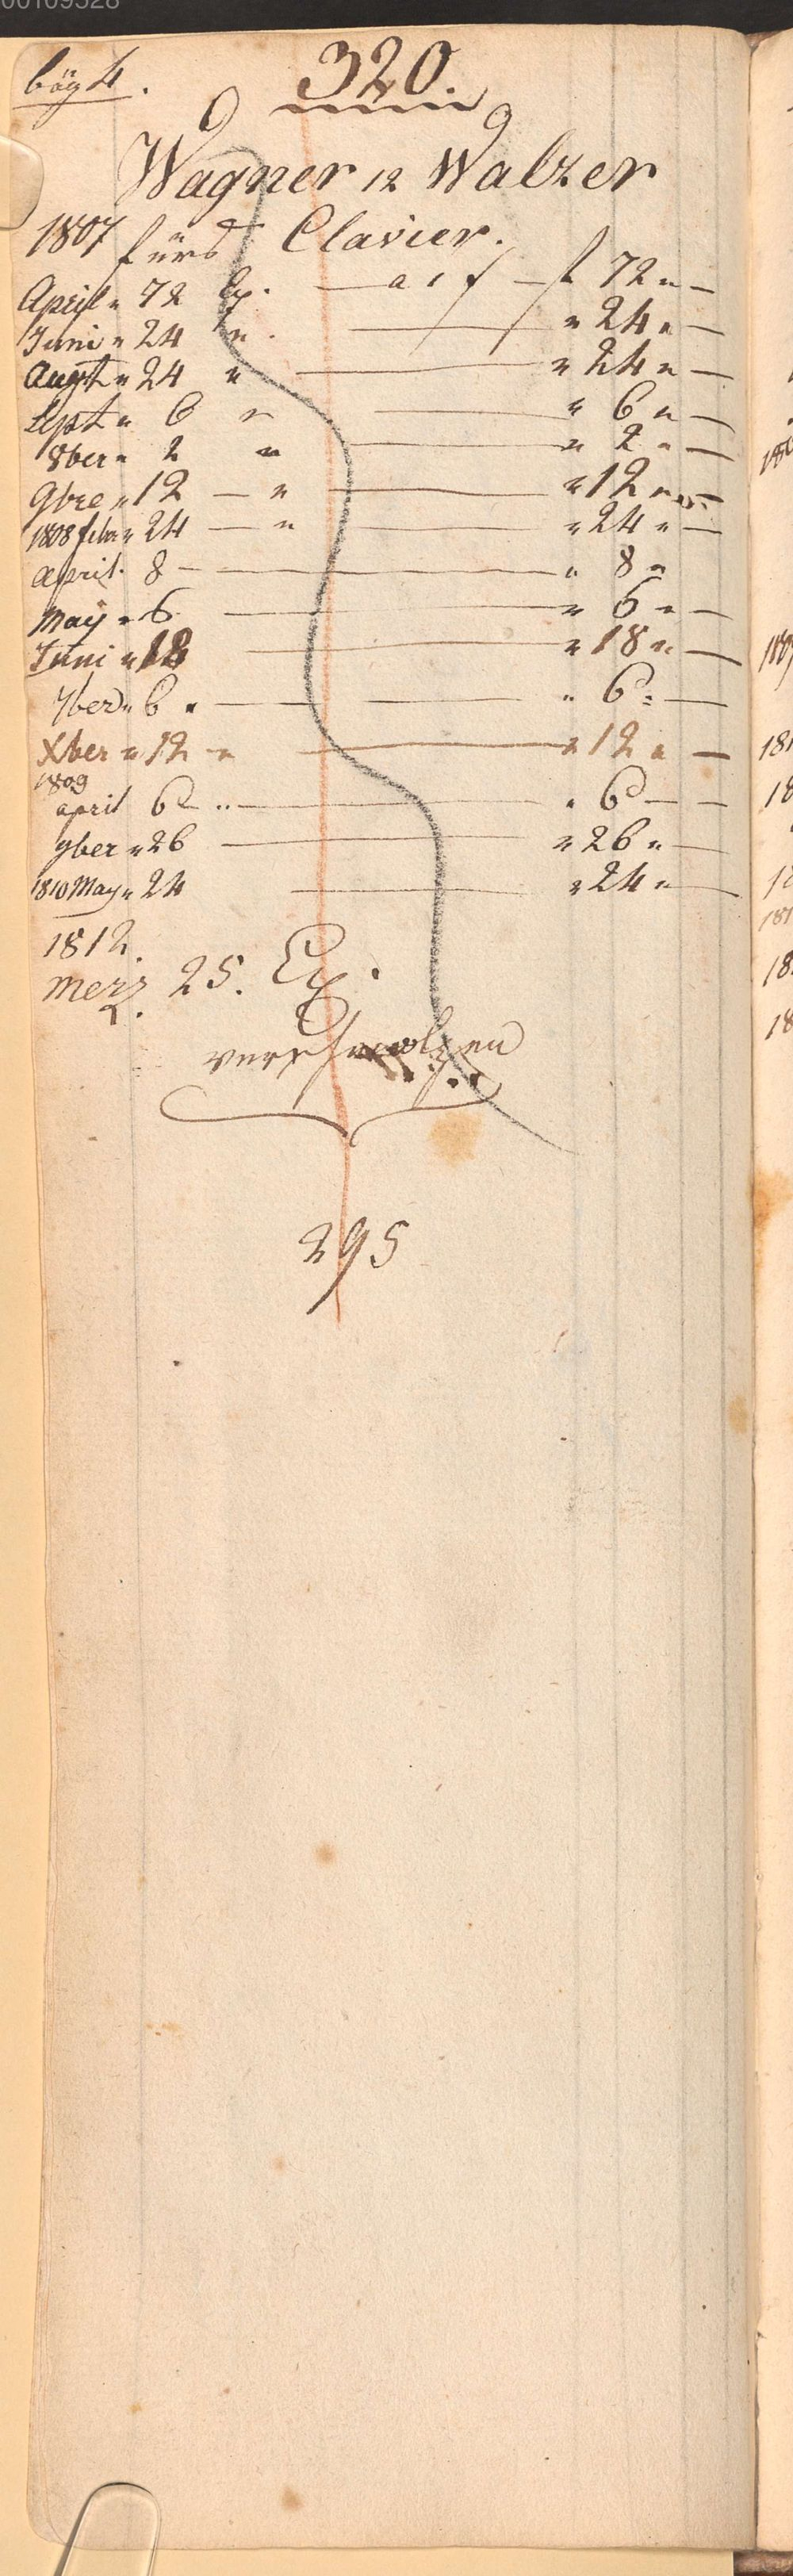 00109328
bög 4.
320.
Wagner 12 Walzer
1807 fürs Clavier.
April " 72 Ex. — a 1 f — f 72 " —
Juni " 24 " . — " 24 " —
Augst " 24 " — " 24 " —
Sept " 6 " — " 6 " —
8ber " 2 " — " 2 " —
9bre " 12 — " — " 12 " —
1808 febr " 24 — " — " 24 " —
april. 8 — — " 8 "
May " 6 — " 6 " —
Juni " 18 — " 18 " —
7ber " 6 " — " 6 " —
Xber " 12 " — " 12 " —
1809
april 6 " — " 6 — —
9ber " 26 — " 26 " —
1810 May " 24 — " 24 " —
1812.
Merz 25. Ex.
verschmolzen
295